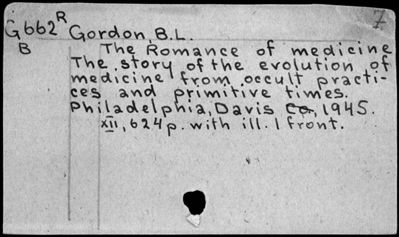 7
G662R Gordon, B.L.
B The Romance of medicine
The story of the evolution of
medicine from occult practi-
ces and primitive times.
Philadelphia, Davis Co., 1945.
xii, 624p. with ill. 1 front.